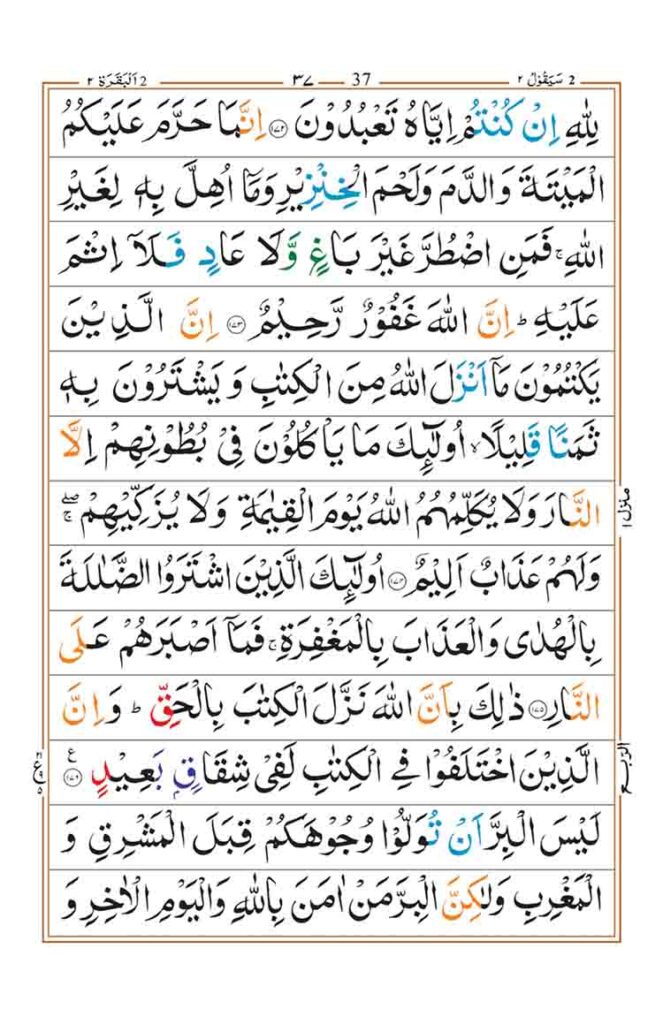 2 سَيَقُوْلُ ٢
37 ٣٧
2 اَلْبَقَرَة ٢
لِلّٰهِ اِنْ كُنْتُمْ اِيَّاهُ تَعْبُدُوْنَ ﴿١٧٢﴾ اِنَّمَا حَرَّمَ عَلَيْكُمُ
الْمَيْتَةَ وَالدَّمَ وَلَحْمَ الْخِنْزِيْرِ وَمَاۤ اُهِلَّ بِهٖ لِغَيْرِ
اللّٰهِ ۚ فَمَنِ اضْطُرَّ غَيْرَ بَاغٍ وَّلَا عَادٍ فَلَاۤ اِثْمَ
عَلَيْهِ ؕ اِنَّ اللّٰهَ غَفُوْرٌ رَّحِيْمٌ ﴿١٧٣﴾ اِنَّ الَّذِيْنَ
يَكْتُمُوْنَ مَاۤ اَنْزَلَ اللّٰهُ مِنَ الْكِتٰبِ وَيَشْتَرُوْنَ بِهٖ
ثَمَنًا قَلِيْلًا ۙ اُولٰٓئِكَ مَا يَاْكُلُوْنَ فِيْ بُطُوْنِهِمْ اِلَّا
النَّارَ وَلَا يُكَلِّمُهُمُ اللّٰهُ يَوْمَ الْقِيٰمَةِ وَلَا يُزَكِّيْهِمْ ۖۚ
وَلَهُمْ عَذَابٌ اَلِيْمٌ ﴿١٧٤﴾ اُولٰٓئِكَ الَّذِيْنَ اشْتَرَوُا الضَّلٰلَةَ
بِالْهُدٰى وَالْعَذَابَ بِالْمَغْفِرَةِ ۚ فَمَاۤ اَصْبَرَهُمْ عَلَى
النَّارِ ﴿١٧٥﴾ ذٰلِكَ بِاَنَّ اللّٰهَ نَزَّلَ الْكِتٰبَ بِالْحَقِّ ؕ وَاِنَّ
الَّذِيْنَ اخْتَلَفُوْا فِي الْكِتٰبِ لَفِيْ شِقَاقٍۭ بَعِيْدٍ ﴿١٧٦﴾ ع
لَيْسَ الْبِرَّ اَنْ تُوَلُّوْا وُجُوْهَكُمْ قِبَلَ الْمَشْرِقِ وَ
الْمَغْرِبِ وَلٰكِنَّ الْبِرَّ مَنْ اٰمَنَ بِاللّٰهِ وَالْيَوْمِ الْاٰخِرِ وَ
منزل ١
الرّبع